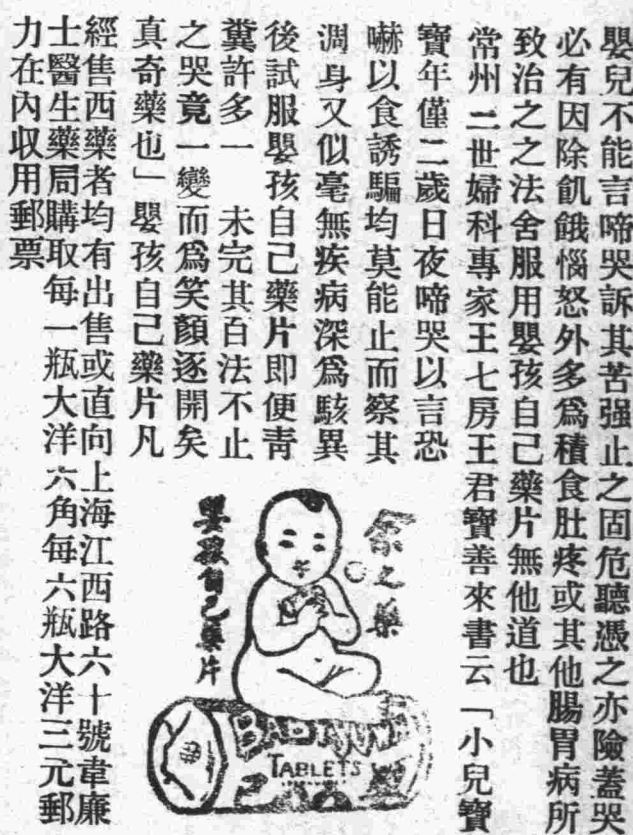 嬰兒不能言啼哭訴其苦强止之固危聽憑之亦險蓋哭
必有因除飢餓惱怒外多爲積食肚疼或其他腸胃病所
致治之之法舍服用嬰孩自己藥片無他道也
常州二世婦科專家王七房王君寶善來書云「小兒寶
寶年僅二歲日夜啼哭以言恐
嚇以食誘騙均莫能止而察其
週身又似毫無疾病深爲駭異
後試服嬰孩自己藥片即便靑
糞許多一 未完其百法不止
之哭竟一變而爲笑顏逐開矣
真奇藥也」嬰孩自己藥片凡
經售西藥者均有出售或直向上海江西路六十號韋廉
士醫生藥局購取每一瓶大洋六角每六瓶大洋三元郵
力在內收用郵票
余之藥
嬰孩自己藥片
TABLETS